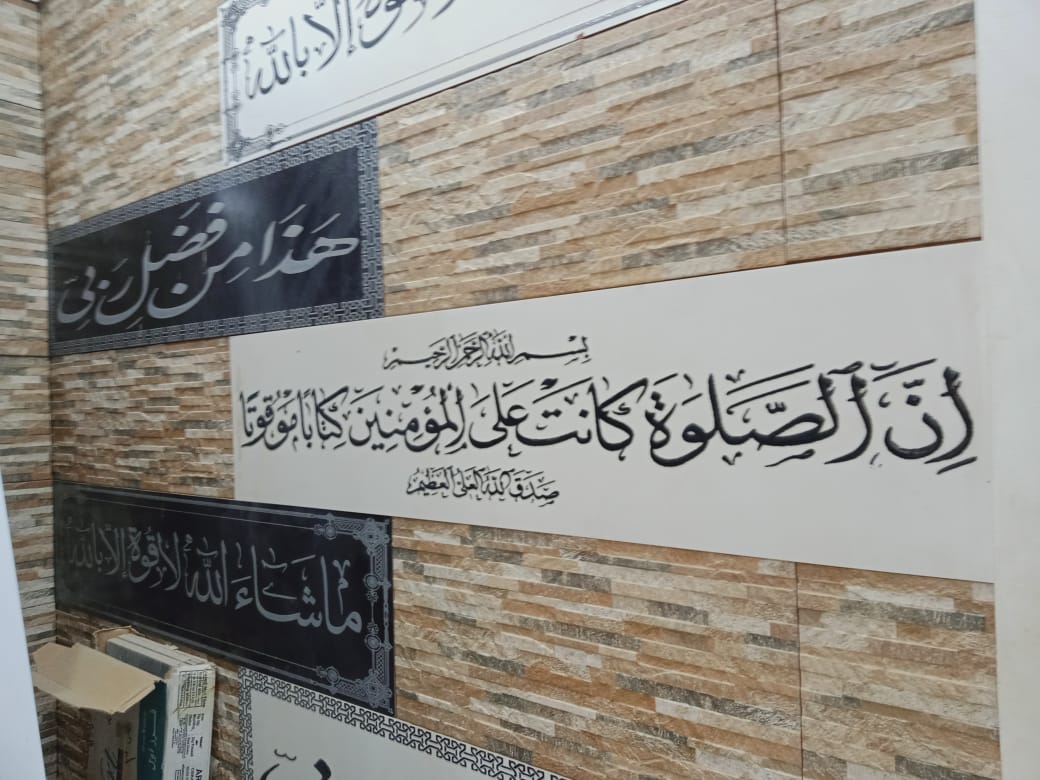 قوة إلا بالله
هَذَا مِن فَضْلِ رَبِّي
بِسْمِ اللَّهِ الرَّحْمَنِ الرَّحِيمِ
إِنَّ ٱلصَّلَوٰةَ كَانَتْ عَلَى ٱلْمُؤْمِنِينَ كِتَابًا مَّوْقُوتًا
صَدَقَ اللَّهُ العَلِيُّ العَظِيمُ
مَا شَاءَ اللَّه لَا قُوَّةَ إِلَّا بِاللَّه